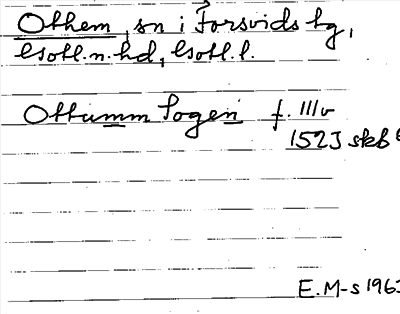 Othem, sn i Forsvids tg,
Gotl.n.hd, Gotl.l.
Ottumm Sogen f. 111v
1523 skB
E.M-s 1963